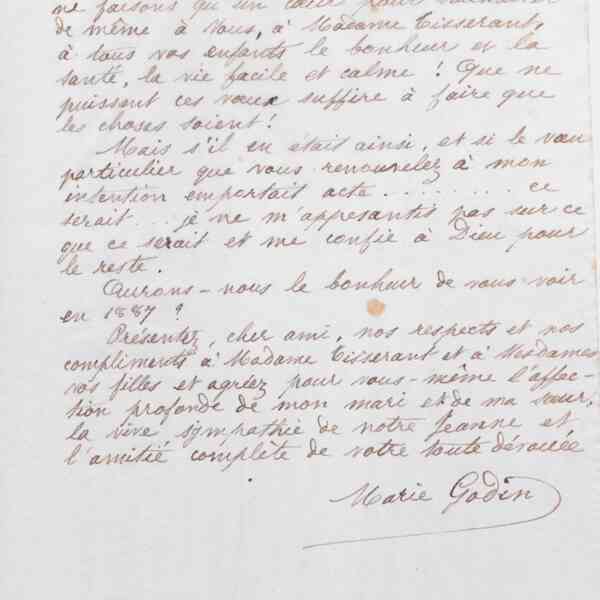 ne faisons qu'un cœur pour
de même à Vous, à Madame Tisserant,
à tous vos enfants le bonheur et la
santé, la vie facile et calme ! Que ne
puissent ces vœux suffire à faire que
les choses soient !
Mais s'il en était ainsi, et si le vœu
particulier que vous renouvelez à mon
intention emportait acte . . . . . . . . ce
serait . . . je ne m'appesantis pas sur ce
que ce serait et me confie à Dieu pour
le reste.
Aurons-nous le bonheur de vous voir
en 1887 ?
Présentez, cher ami, nos respects et nos
compliments à Madame Tisserant et à Mesdames
vos filles et agréez pour vous-même l'affec-
tion profonde de mon mari et de ma sœur,
la vive sympathie de notre Jeanne et
l'amitié complète de votre toute dévouée
Marie Godin